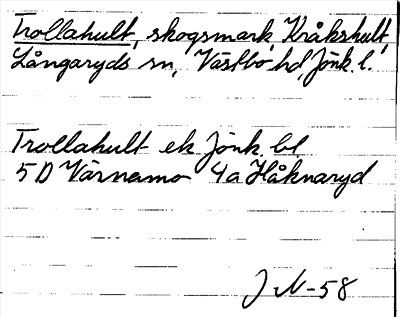 Trollahult, skogsmark, Kråkshult,
Långaryds sn, Västbo hd, Jönk. l.
Trollahult ek Jönk. bl.
5D Värnamo 4a Håknaryd
J N -58